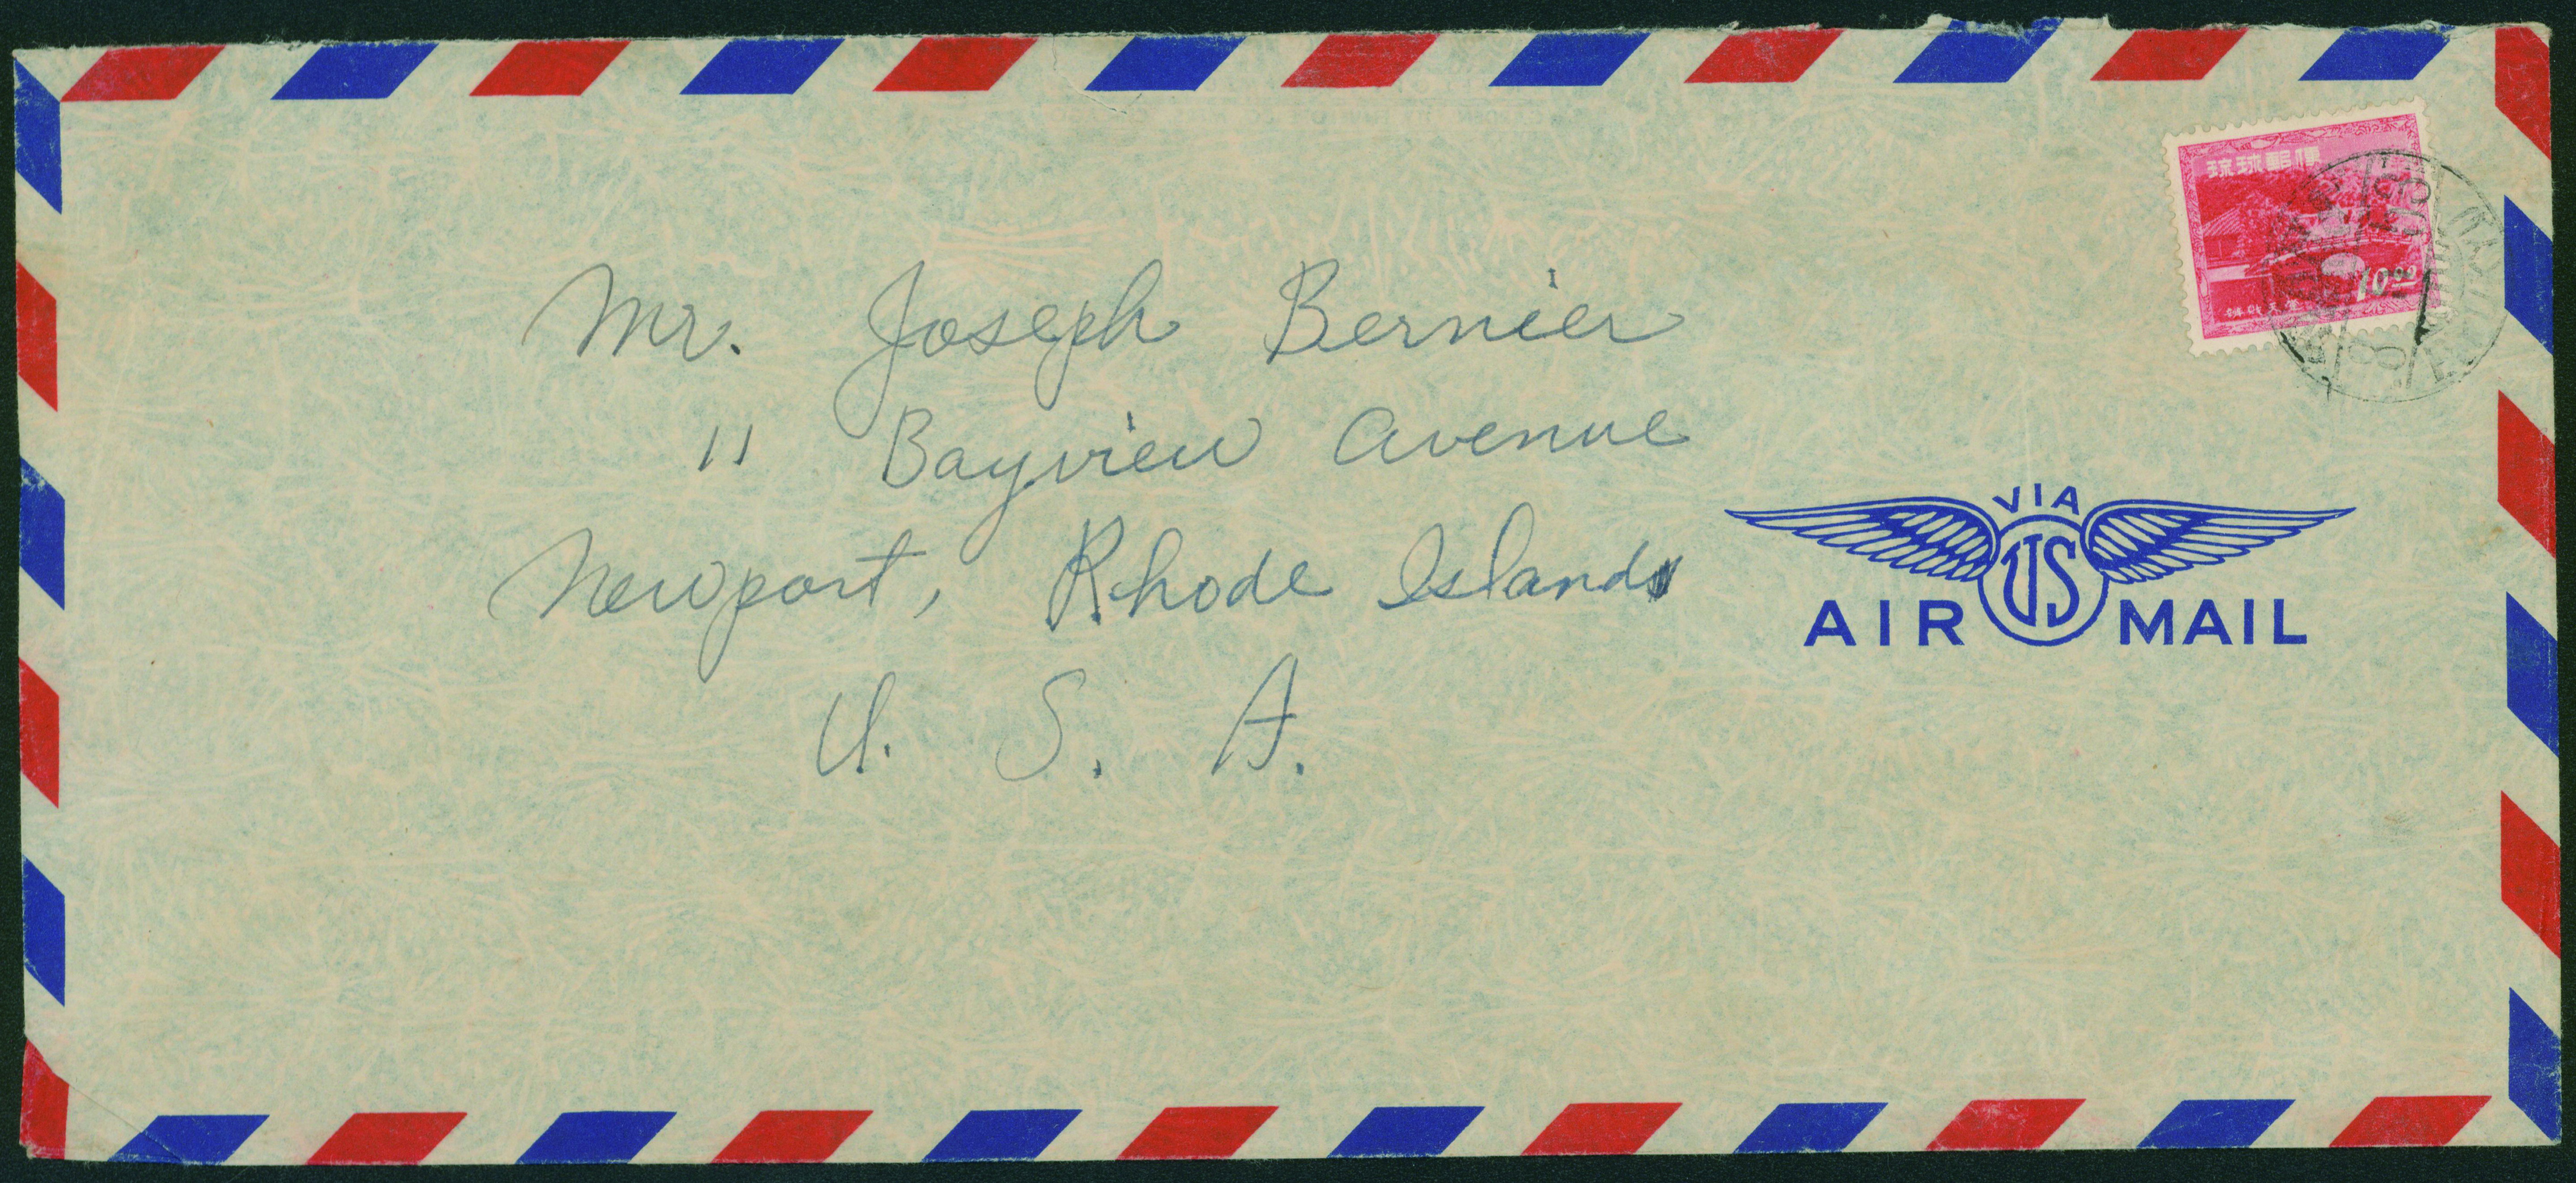 琉球郵便
10.00
Mr. Joseph Bernier
11 Bayview Avenue
Newport, Rhode Island
U. S. A.
VIA
US
AIR MAIL